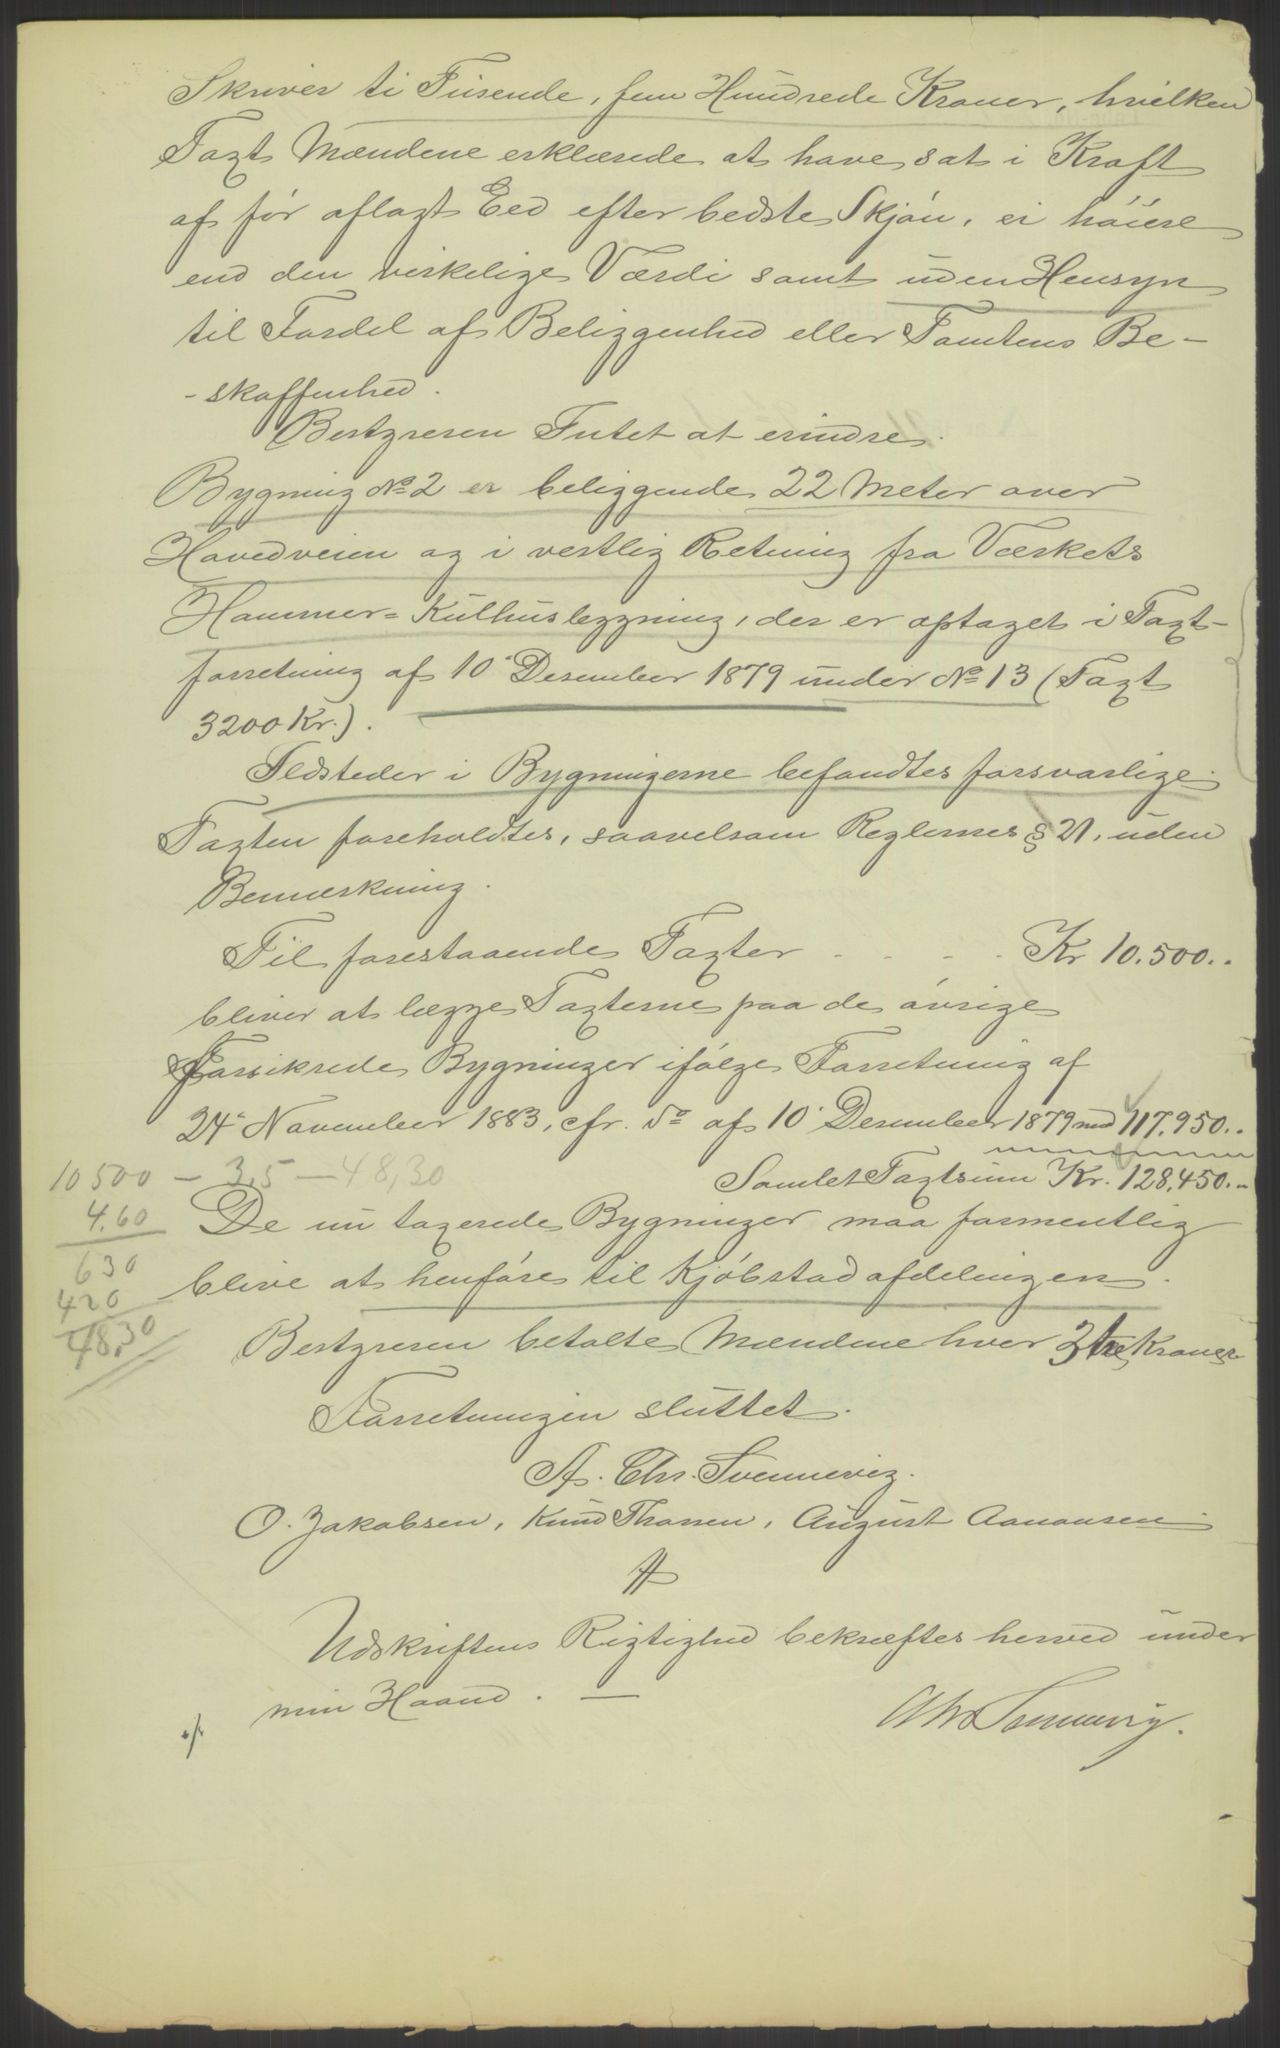 Skriver ti Tusende, fem Hundrede Kroner, hvilken
Taxt Mændene erklærede at have sat i Kraft
af før aflagt Eed efter bedste Skjøn, ei høiere
end den virkelige Værdi samt uden Hensyn
til Fordel af Beliggenhed eller Tomtens Be-
-skaffenhed.
Bestyreren Intet at erindre.
Bygning No 2 er beliggende 22 Meter over
Hovedveien og i vestlig Retning fra Værkets
Hammer=Kulhusbygning, der er optaget i Taxt-
forretning af 10' Desember 1879 under No 13 (Taxt
3200 Kr.).
Ildsteder i Bygningerne befandtes forsvarlige.
Taxten foreholdtes, saavelsom Reglernes § 21, uden
Bemærkning.
Til forestaaende Taxter - - - - Kr 10.500..
bliver at lægge Taxterne paa de øvrige
Forsikrede Bygninger ifølge Forretning af
24' November 1883, cfr. Do af 10' Desember 1879 med 117.950..
10500 - 3,5 - 48,30
Samlet Taxtsum Kr. 128.450..
4.60
De nu taxerede Bygninger maa formentlig
630
blive at henføre til Kjøbstadafdelingen.
420
48,30
Bestyreren betalte Mændene hver 3 tre Kroner
Forretningen sluttet.
A. Chr. Svennevig.
O. Jakobsen, Knud Thorsen, August Aanonsen
Udskriftens Rigtighed bekræftes herved under
min Haand. —
AChrSvennevig.